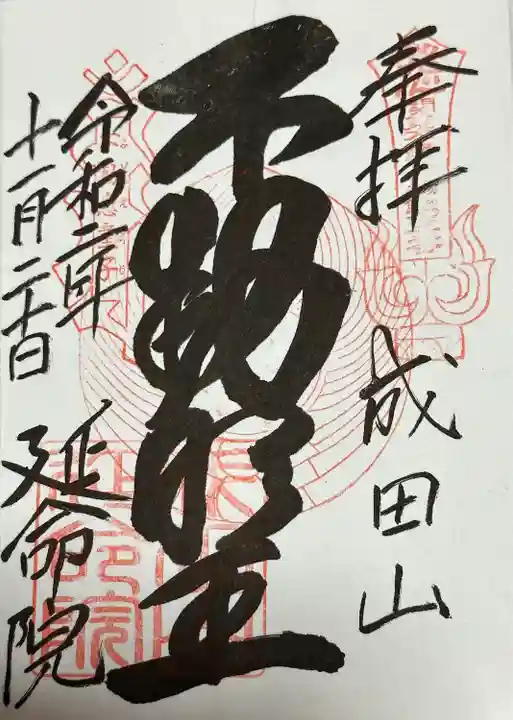 奉拝
成田山
不動明王
令和二年
十一月二十日
延命院